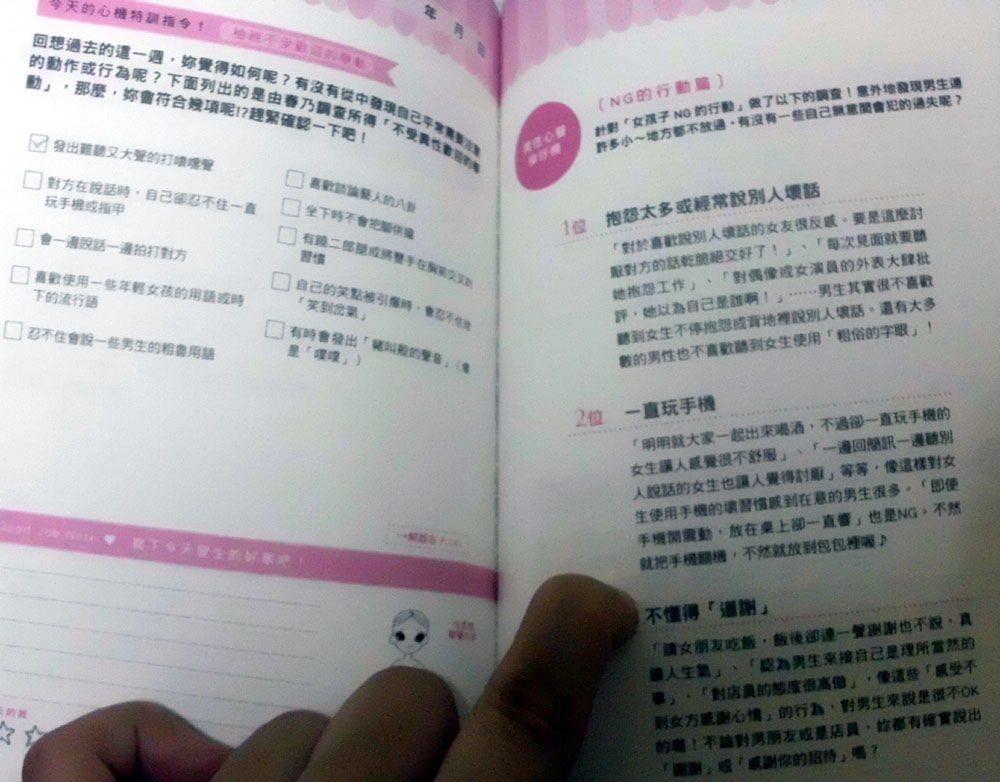 今天的心機特訓指令！
檢視不受歡迎的舉動
年 月 日
回想過去的這一週，妳覺得如何呢？有沒有從中發現自己平常需要注意
的動作或行為呢？下面列出的是由春乃調查所得「不受異性歡迎的舉
動」，那麼，妳會符合幾項呢!?趕緊確認一下吧！
發出難聽又大聲的打噴嚏聲
對方在說話時，自己卻忍不住一直
玩手機或指甲
會一邊說話一邊拍打對方
喜歡使用一些年輕女孩的用語或時
下的流行語
忍不住會說一些男生的粗魯用語
喜歡談論藝人的八卦
坐下時不會把腳併攏
有蹺二郎腿或將雙手在胸前交叉的
習慣
自己的笑點被引爆時，會忍不住地
「笑到岔氣」
有時會發出「豬叫般的聲音」（像
是「噗噗」）
Good Job Note ♥ 寫下今天發生的好事吧！
〔NG的行動篇〕
針對「女孩子NG的行動」做了以下的調查！意外地發現男生連
許多小～地方都不放過。有沒有一些自己無意間會犯的過失呢？
1位 抱怨太多或經常說別人壞話
「對於喜歡說別人壞話的女友很反感。要是這麼討
厭對方的話乾脆絕交好了！」、「每次見面就要聽
她抱怨工作」、「對偶像或女演員的外表大肆批
評，她以為自己是誰啊！」……男生其實很不喜歡
聽到女生不停抱怨或背地裡說別人壞話。還有大多
數的男性也不喜歡聽到女生使用「粗俗的字眼」！
2位 一直玩手機
「明明就大家一起出來喝酒，不過卻一直玩手機的
女生讓人感覺很不舒服」、「一邊回簡訊一邊聽別
人說話的女生也讓人覺得討厭」等等，像這樣對女
生使用手機的壞習慣感到在意的男生很多。「即使
手機開震動，放在桌上卻一直響」也是NG。不然
就把手機關機，不然就放到包包裡喔♪
不懂得「道謝」
「請女朋友吃飯，飯後卻連一聲謝謝也不說，真
讓人生氣」、「認為男生來接自己是理所當然的
事」、「對店員的態度很高傲」，像這些「感受不
到女方感謝心情」的行為，對男生來說是很不OK
的喔！不論對男朋友或是店員，妳都有確實說出
「謝謝」或「感謝你的招待」嗎？